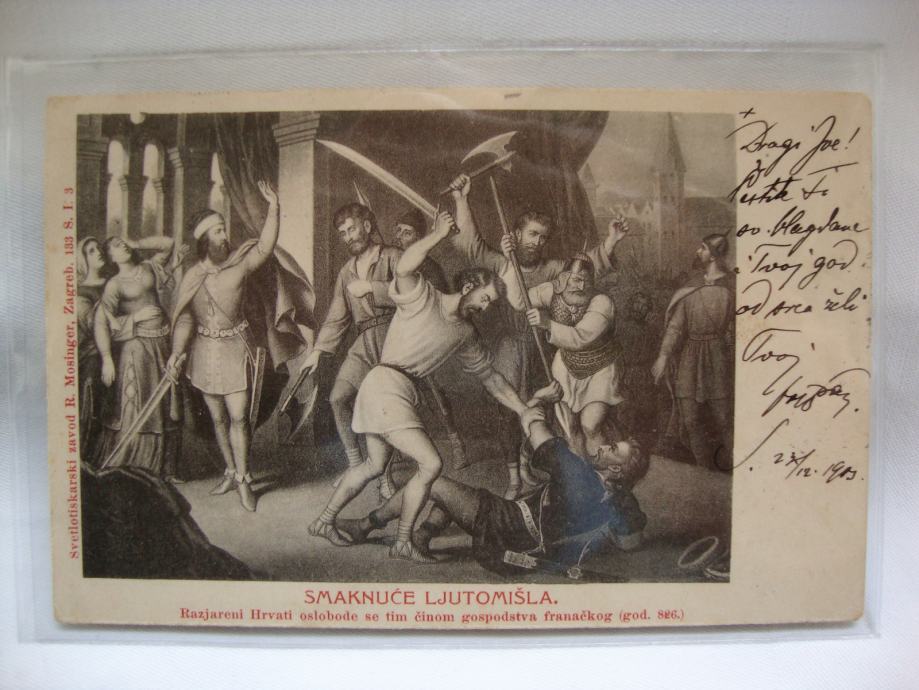 Svetlotiskarski zavod R. Mosinger, Zagreb. 133 S. I. 3
+
Dragi Joe!
Ti
sv. blagdane
i Tvoj god
od srca želi
Tvoj
23/12. 1903.
SMAKNUĆE LJUTOMIŠLA.
Razjareni Hrvati oslobode se tim činom gospodstva franačkog (god. 826.)